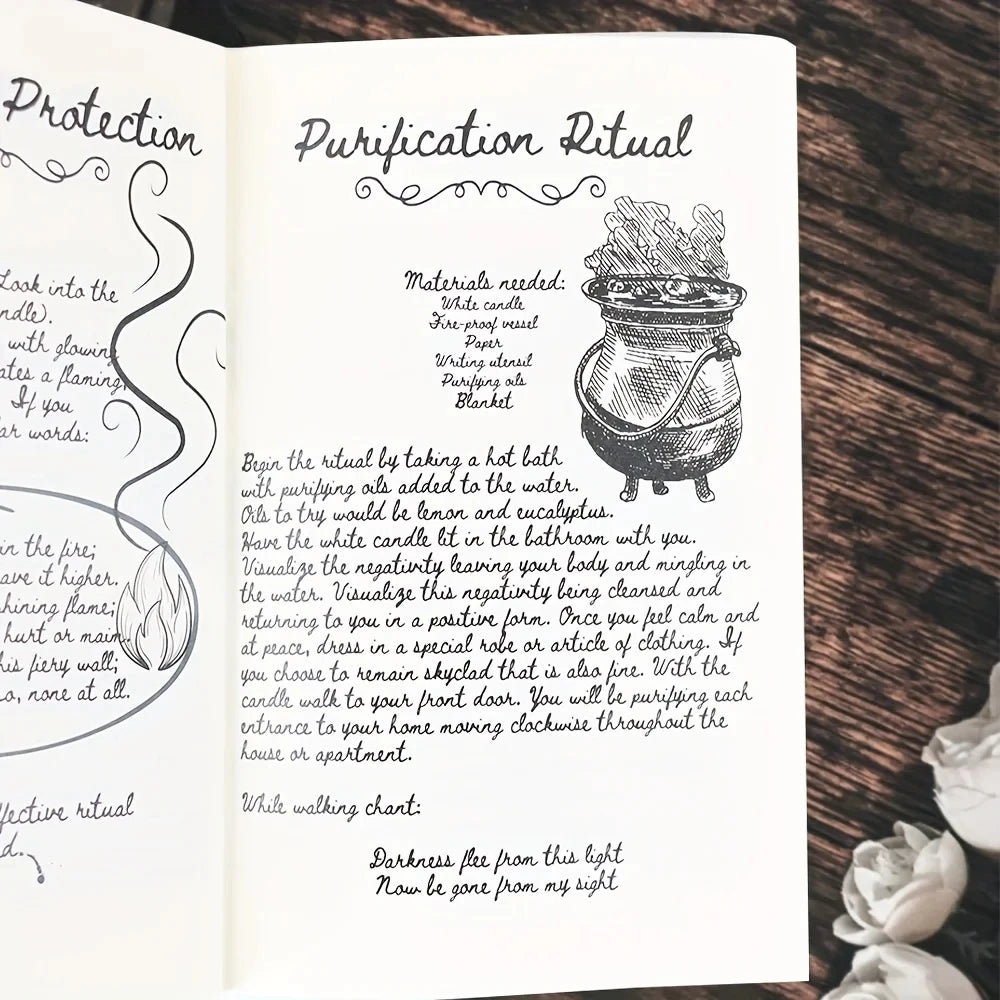 Protection
Look into the
ndle).
with glowing
ates a flaming,
If you
ar words:
in the fire;
ave it higher.
shining flame;
hurt or maim.
his fiery wall;
o, none at all.
ffective ritual
d.
Purification Ritual
Materials needed:
White candle
Fire-proof vessel
Paper
Writing utensil
Purifying oils
Blanket
Begin the ritual by taking a hot bath
with purifying oils added to the water.
Oils to try would be lemon and eucalyptus.
Have the white candle lit in the bathroom with you.
Visualize the negativity leaving your body and mingling in
the water. Visualize this negativity being cleansed and
returning to you in a positive form. Once you feel calm and
at peace, dress in a special robe or article of clothing. If
you choose to remain skyclad that is also fine. With the
candle walk to your front door. You will be purifying each
entrance to your home moving clockwise throughout the
house or apartment.
While walking chant:
Darkness flee from this light
Now be gone from my sight